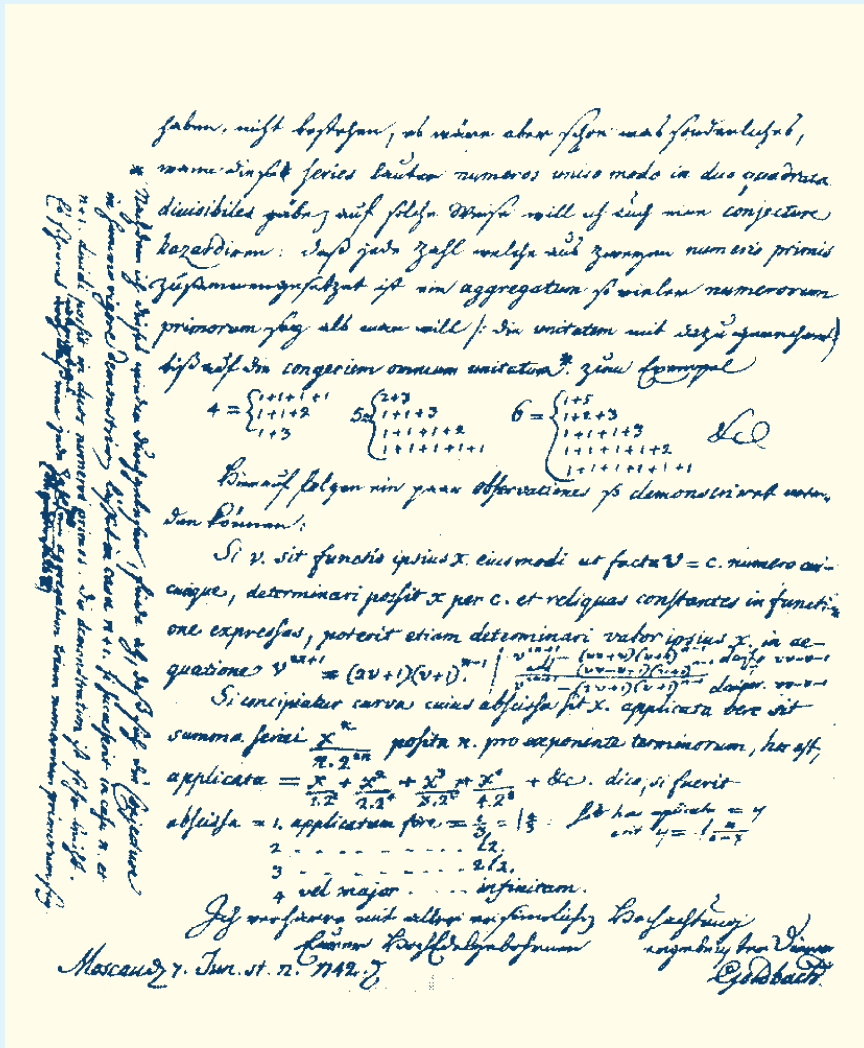 haben, nicht bestehen, es wäre aber schon was sonderliches,
wann diese series lauter numeros unico modo in duo quadrata
divisibiles gäbe; auf solche Weise will ich auch eine conjecture
hazardiren: daß jede Zahl welche aus zweyen numeris primis
zusammengesetzet ist ein aggregatum so vieler numerorum
primorum sey als man will /: die unitatem mit dazu gerechnet
biß auf die congeriem omnium unitatum*. zum Exempel
4 = { 1+1+1+1
1+1+2
1+3
5 = { 2+3
1+1+3
1+1+1+2
1+1+1+1+1
6 = { 1+5
1+2+3
1+1+1+3
1+1+1+1+2
1+1+1+1+1+1
&c
Hierauf folgen ein paar observationes so demonstriret wer-
den können:
Si v. sit functio ipsius x. eiusmodi ut facta v = c. numero cui-
cunque, determinari possit x per c. et reliquas constantes in functi-
one expressas, poterit etiam determinari valor ipsius x. in ae-
quatione v²ⁿ⁺¹ = (2v+1)(v+1)ⁿ⁻¹
Si concipiatur curva cuius abscissa sit x. applicata vero sit
summa seriei xⁿ/n.2²ⁿ posita n. pro exponente terminorum, hoc est,
applicata = x/1.2² + x²/2.2⁴ + x³/3.2⁶ + x⁴/4.2⁸ + &c. dico, si fuerit
abscissa = 1. applicatam fore = l 4/3
2 - - - - - - - - l2.
3 - - - - - - - - 2l2.
4 vel major - - - - infinitam.
Ich verharre mit aller ersinnlichen Hochachtung
Eurer HochEdelgebohrnen ergebenster Diener
Moscau d. 7. Jun. st. n. 1742. Goldbach.
* Nachdem ich dieses wieder durchgelesen, finde ich, daß sich die conjecture
in summo rigore demonstriren läßet in casu n+1. si successerit in casu n. et
n+1. dividi possit in duos numeros primos. Die demonstration ist sehr leicht.
Es scheinet wenigstens, daß eine jede Zahl ein aggregatum trium numerorum primorum sey.